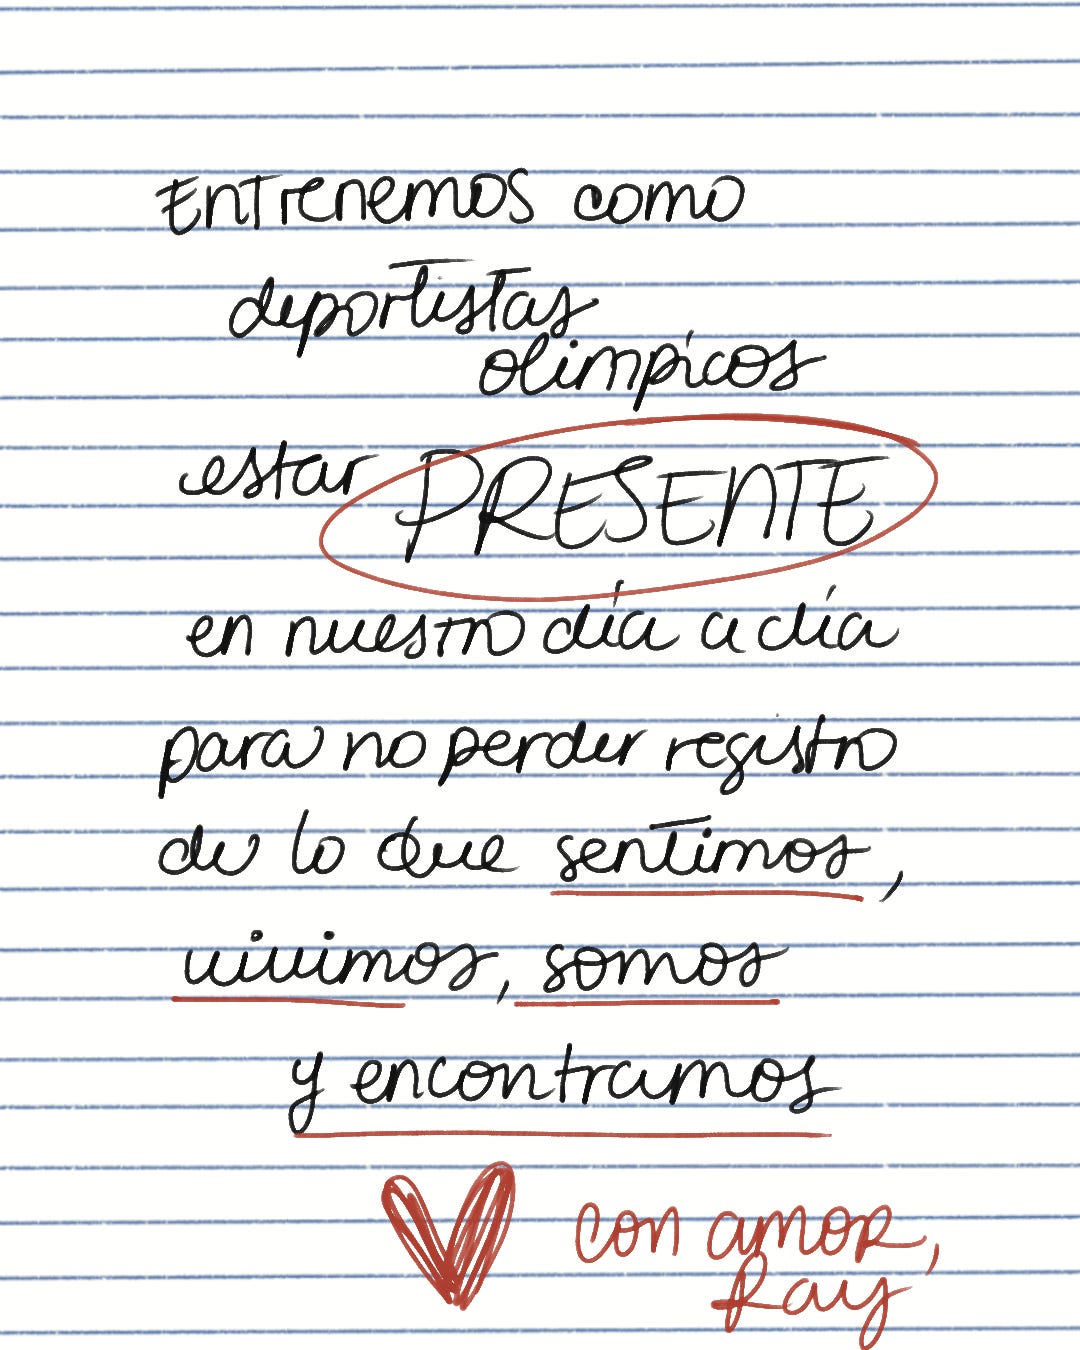 Entrenemos como
deportistas
olimpícos
estar PRESENTE
en nuestro día a día
para no perder registro
de lo que sentimos,
vivimos, somos
y encontramos
con amor,
Ray